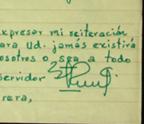 expresar mi reiteración
ara Ud. jamás existirá
osotros o sea a todo
servidor
rera,